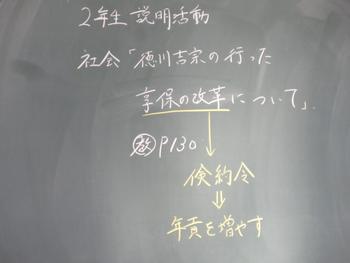 2年生 説明活動
社会「徳川吉宗の行った
享保の改革について」
教 P130
↓
倹約令
⇓
年貢を増やす